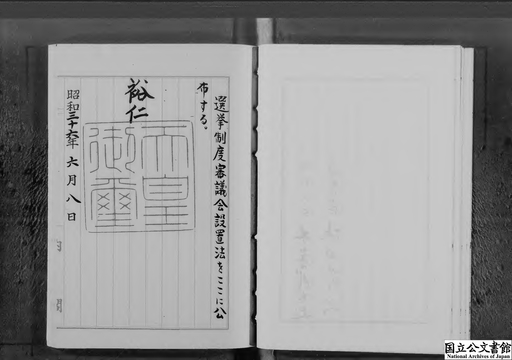 選挙制度審議会設置法をここに公
布する。
裕仁
天皇
御璽
昭和三十六年六月八日
国立公文書館
National Archives of Japan